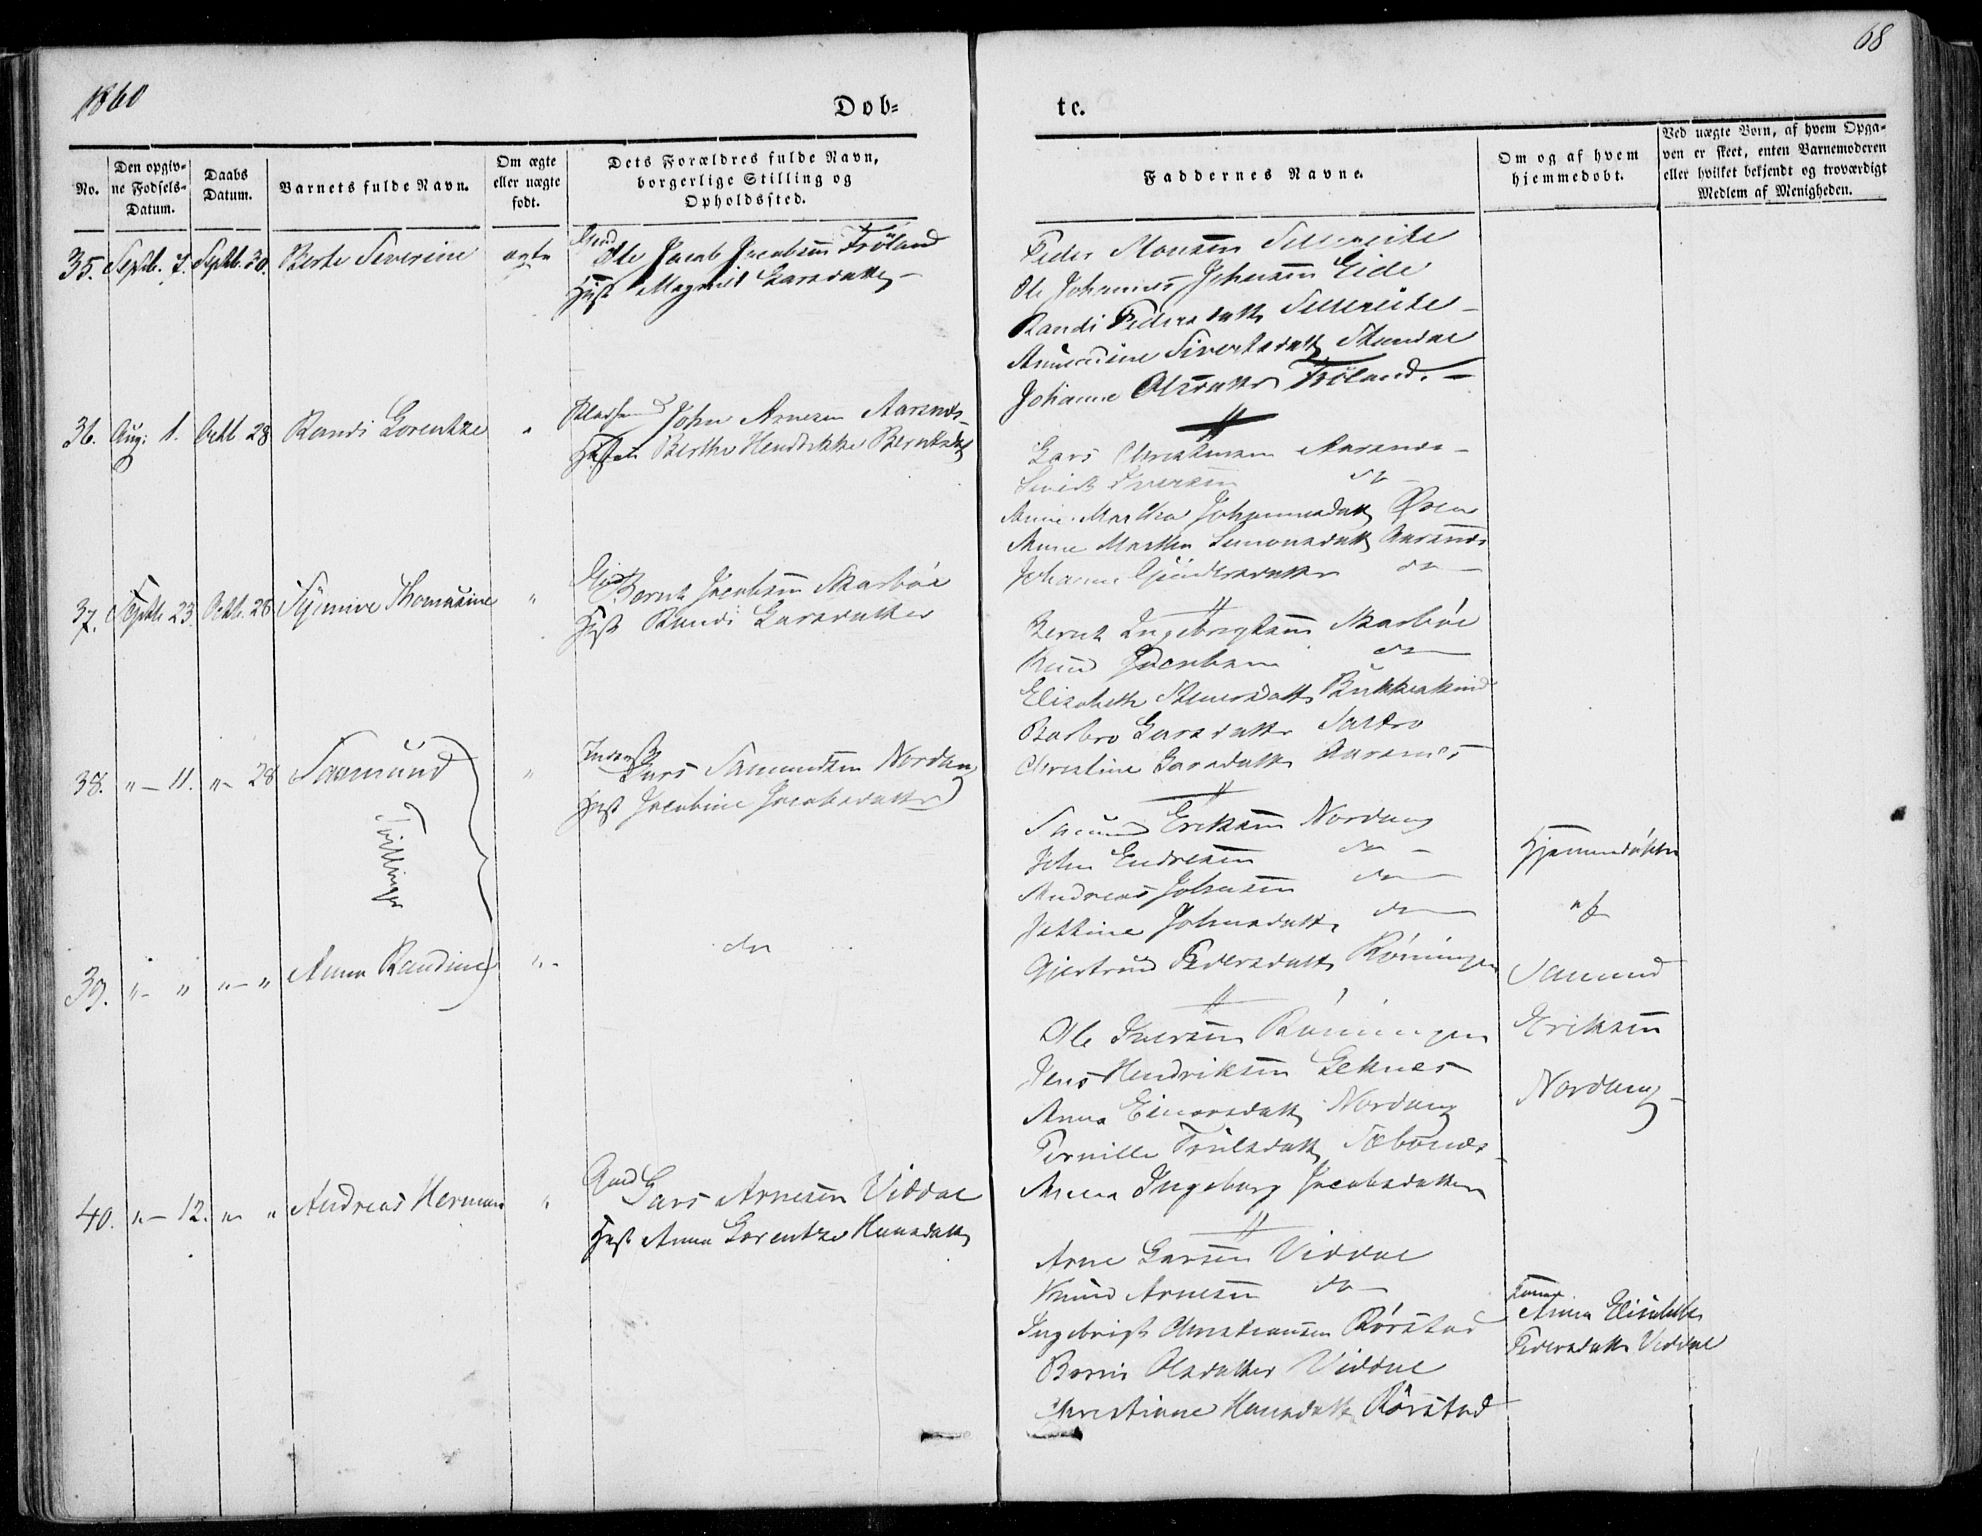 1860
68
Døb=
te.
No.
Den opgiv=
ne Fødsels=
Datum.
Daabs
Datum.
Barnets fulde Navn.
Om ægte
eller uægte
født.
Dets Forældres fulde Navn,
borgerlige Stilling og
Opholdssted.
Faddernes Navne.
Om og af hvem
hjemmedøbt.
Ved uægte Børn, af hvem Opga=
ven er skeet, enten Barnemoderen
eller hvilket bekjendt og troværdigt
Medlem af Menigheden.
35. Septb. Septb. 30. Berte Severine ægte
Ole Jacob Jacobsen Frøland
Hust Magnild Larsdatter
Peder Monsen
Ole Johannes Johnsen Eide
Randi Pedersdatt
Sivertsdatt Standal
Johanne Olsdatter Frøland. -
36. Aug: 1. Octb. 28 Randi Lorentze "
John Arnesen Aarsnes
Berthe Hendrikke Berntsdatt
Lars Christensen Aarsnes
Iversen do -
Anne Marthe Johannesdatt
Anne Marthe Simonsdatt Aarsnes
Johanne do -
37. Septb 23. Octb. 28 Thomasine "
Bernt Jacobsen Skarbøe
Hust Randi Larsdatter
Bernt Ingebrigtsen Skarbøe
Knud Jacobsen do
Elisabeth
Barbro Larsdatter Sætro
Christine Larsdatt Aarsnes
38. " - 11. " - 28 Samund "
Tvillinger
Lars Samundsen Nordang
Hust Jacobine Jacobsdatter
Samund Eriksen Nordang
John Endresen do -
Andreas Johnsen do
Jettine Johnsdatt do
Gjertrud Pedersdatt Røningen
Hjemmedøbte
af
Samund
Eriksen
Nordang
39. " - " " - " Anna Randine " -
do
Ole Iversen Røningen
Jens Hendriksen Leknes
Anna Einarsdatt Nordang
Pernille Truelsdatt Sæbønes
Anna Ingeborg Jacobsdatter
40. " - 12. " - " Andreas Herman "
Gmd Lars Arnesen Viddal
Hust Anna Lorentze Hansdatt
Arne Larsen Viddal
Knud Arnesen do -
Ingebrigt Christiansen Rørstad
Olsdatter Viddal
Christiane Hansdatt Rørstad
Anna Elisabeth
Pedersdatt Viddal